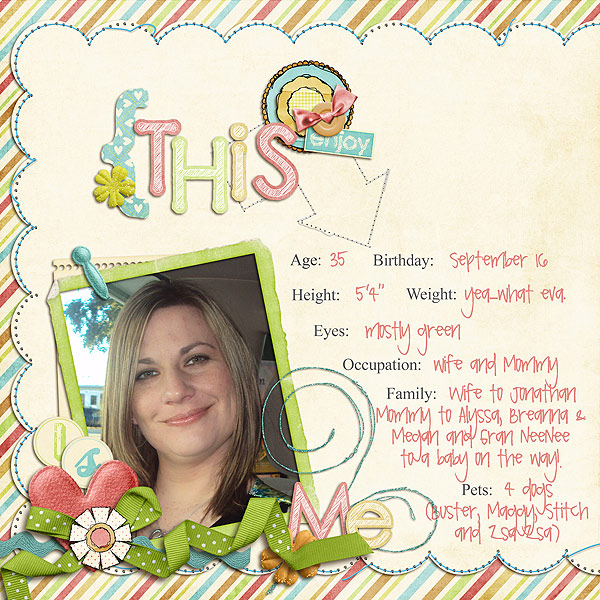 {THiS
enjoy
Age: 35 Birthday: September 16
Height: 5'4" Weight: yea...what eva.
Eyes: mostly green
Occupation: wife and Mommy
Family: Wife to Jonathan
Mommy to Alyssa, Breanna &
Megan and Gran NeeNee
to a baby on the way!
Pets: 4 dogs
(Buster, Maggy, Stitch
and Zsa Zsa)
is
Me